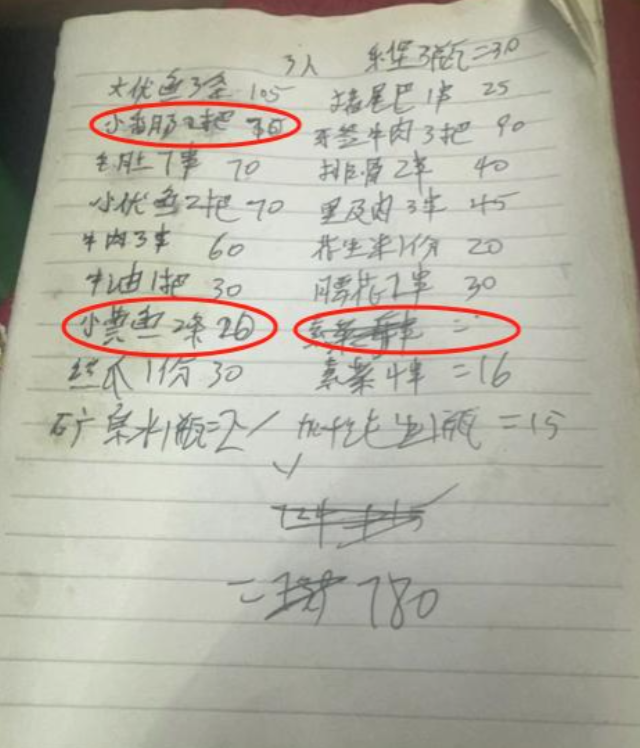 3人 乐堡3瓶=30
大优鱼3条 105 猪尾巴1串 25
小香肠2把 牙签牛肉3把 90
毛肚7串 70 排骨2串 40
小优鱼2把 70 里及肉3串 45
牛肉3串 60 花生米1份 20
牛油1把 30 腰花2串 30
小黄鱼2条 26
丝瓜1份 30 素菜4串 =16
矿泉水1瓶=2 1瓶 =15
= 780